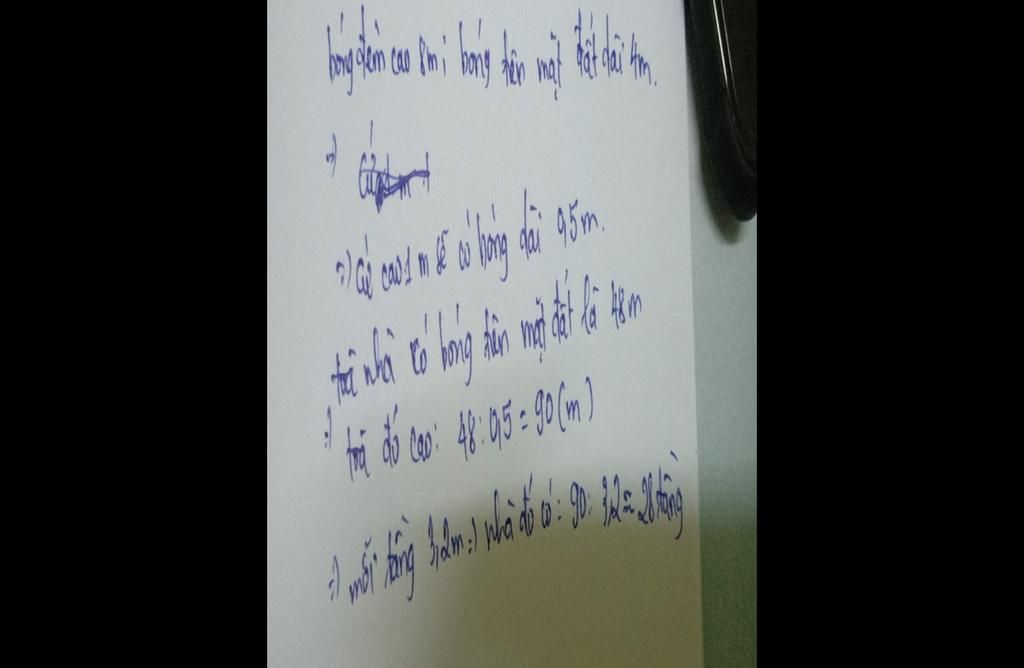 bóng đèn cao 8m; bóng trên mặt đất dài 4m.
=)
=) Cứ cao 1m sẽ có bóng dài 0,5m.
toà nhà có bóng trên mặt đất là 48m
=) toà đó cao: 48 : 0,5 = 90 (m)
=) mỗi tầng 3,2m =) nhà đó có: 90 : 3,2 ≈ 28 tầng